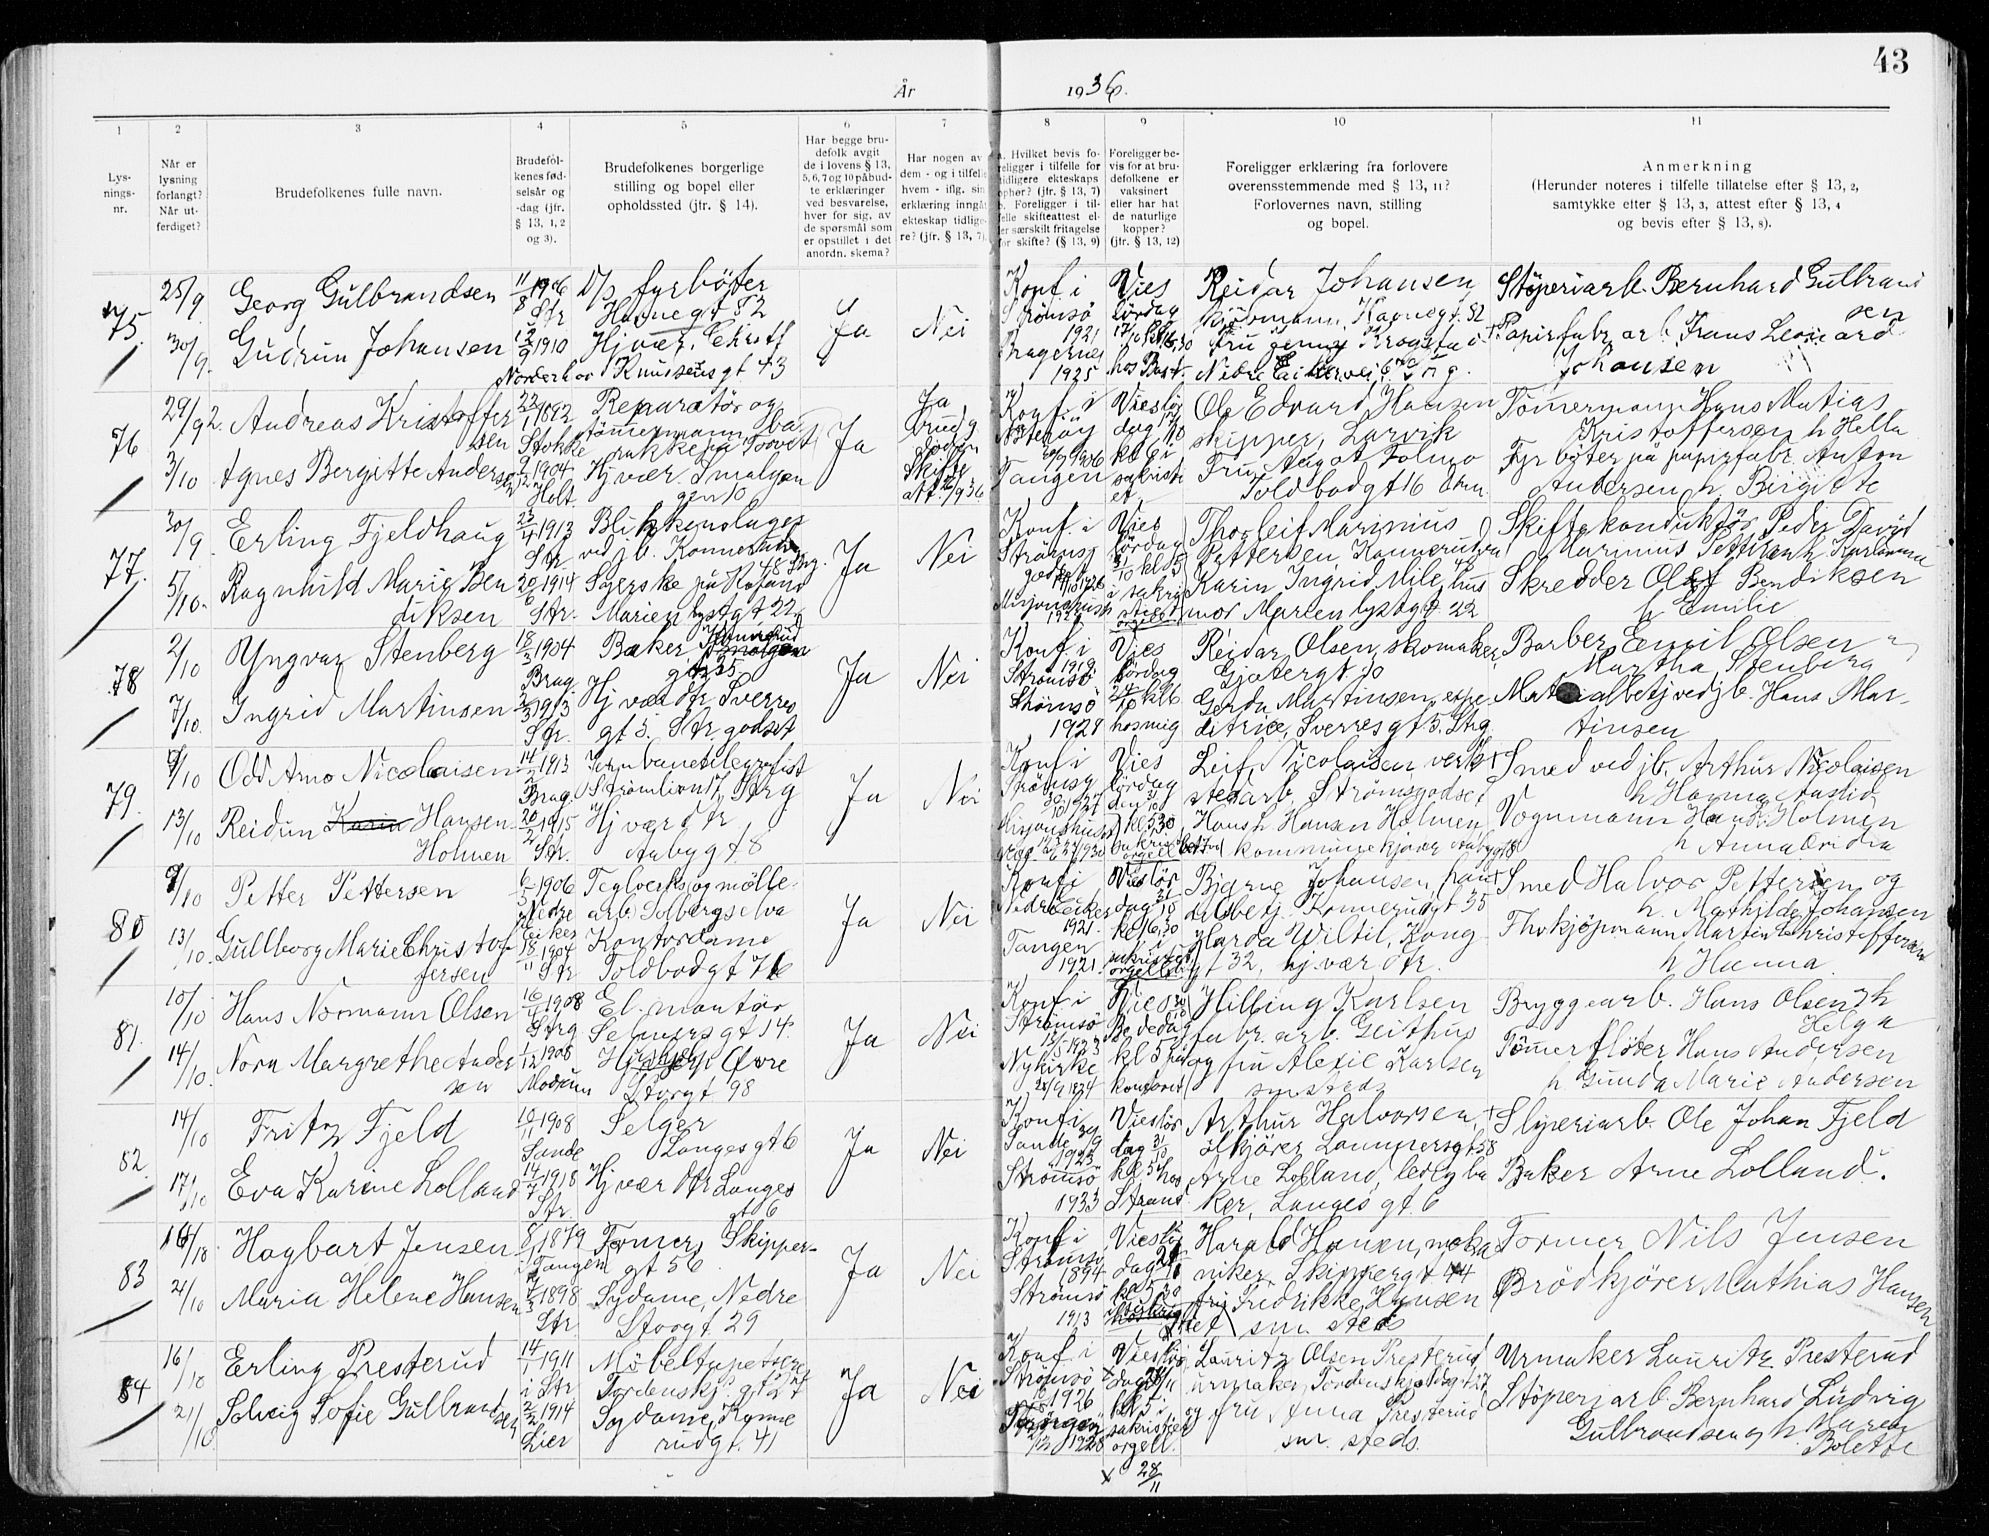 43
År 1936.
1 2 3 4 5 6 7 8 9 10 11
Lys-
nings-
nr.
Når er
lysning
forlangt?
Når ut-
ferdiget?
Brudefolkenes fulle navn.
Brudefol-
kenes fød-
selsår og
-dag (jfr.
§ 13, 1, 2
og 3).
Brudefolkenes borgerlige
stilling og bopel eller
opholdssted (jfr. § 14).
Har begge bru-
defolk avgit
de i lovens § 13,
5, 6, 7 og 10 påbud-
te erklæringer
ved besvarelse,
hver for sig, av
de spørsmål som
er opstillet i det
anordn. skema?
Har nogen av
dem - og i tilfelle
hvem - iflg. sin
erklæring inngåt
ekteskap tidlige-
re? (jfr. § 13, 7).
a. Hvilket bevis fo-
religger i tilfelle for
tidligere ekteskaps
ophør? (jfr. § 13, 7)
b. Foreligger i til-
felle skifteattest el-
ler særskilt fritagelse
for skifte? (§ 13, 9)
Foreligger be-
vis for at bru-
defolkene er
vaksinert
eller har hat
de naturlige
kopper?
(jfr. § 13, 12)
Foreligger erklæring fra forlovere
overensstemmende med § 13, 11?
Forlovernes navn, stilling
og bopel.
Anmerkning
(Herunder noteres i tilfelle tillatelse efter § 13, 2,
samtykke efter § 13, 3, attest efter § 13, 4
og bevis efter § 13, 8).
75.
25/9
30/9.
Georg Gulbrandsen
Gudrun Johansen
11/8 1906
Str
12/9 1910
Norderhov
D/s fyrbøter
Havnegt 52
Hj vær. Christ
Knudsensgt 43
Ja
Nei
Konf i
Strömsö
1921
Bragernes
1925
Vies
lördag
Reidar Johansen
Havnegt. 52
Fru Jenny Krogstad
Nedre
Støperiarb. Bernhard Gulbrand
sen
Papirfabr. arb. Frans Leonard
Johansen
76
29/9
3/10
Andreas Kristoffer
sen
Agnes Bergitte Andersen
22/1 1892
Stokke
9/12 1904
Holt
Reparatör og
tömmermann
Hj vær. Smalgan
gen 10
Ja
Ja
brudg
Skifte
Konf. i
Nötteröy
Tangen
Vieslör
dag
kl 6 i
sakristi
et
Ole Edvard Hansen
skipper, Larvik
Fru Aagot Tolmo
Toldbodgt 16
Tömermann Hans Matias
Kristoffersen h Hella
Fyrböter på papirfabr. Anton
Andersen h. Birgitte
77.
30/9
5/10.
Erling Fjeldhaug
Ragnhild Marie Ben
diksen
23/4 1913
Str.
20/6 1914
Str.
Blikkenslager
ved jb. Konnerud
48 Strg.
Syerske på Kafand
Marienlystgt 22
Ja
Nei
Konf. i
Strömsg
Misjonshuset
Vies
lördag
3/10 kl 5
i sakri
stiet
orgel
Thorleif Marinius
Pettersen, Konnerudva
Karin Ingrid Mile, hus
mor Marienlystgt 22
Skiftekonduktör Peder David
Marinius Pettersen h. Karamma
Skredder Olaf Bendiksen
h Emilie
78
2/10
7/10
Yngvar Stenberg
Ingrid Martinsen
18/3 1904
Brag
2/3 1913
Str.
Baker Konnerud
gt 35
Hj vær dr. Sverres
gt 5. Str. godset
Ja
Nei
Konf i
Strömsö
1919
Strömsö
1927
Vies
lördag
24/10 kl 6
hos mig
Reidar Olsen, skomaker,
Gjetergt 10
Gerda Martinsen, expe
ditrice, Sverresgt 5, Strg
Barber Emil Olsen
Martha Stenberg
betj ved jb. Hans Mar-
tinsen
79
9/10
13/10
Odd Arno Nicolaisen
Reidun Karin Hansen
Holmen
14/2 1913
Brag.
20/2 1915
Str.
Jernbanetelegrafist
Strömlivn 17 Strg
Hj vær dr
Aabygt 8
Ja
Nei
Konf i
Strömsg
Misjonshuset
Vies
lördag
den 31/10
kl 5.30
Leif Nicolaisen, verk
stedarb. Strömsgodset
Hans h. Hansen Holmen,
kommunekjörer Aabygt 8
Smed ved jb. Arthur Nicolaisen
h Hanna Aastid
Vognmann Hans Holmen
h Anna Oridia
80
9/10
13/10.
Petter Pettersen
Gullborg Marie Christof-
fersen
6/5 1906
Nedre
Eiker
18/11 1904
Str
Teglverks og mölle-
arb. Solbergselva
Kontordame
Toldbodgt 76
Ja
Nei
Konf i
Nedre Eiker
1921.
Tangen
1921
Vieslör
dag 31/10
kl 6,30
i
Bjarne Johansen, han
delsbetj. Konnerudgt 35
Harda Wiltil, Kong
gt 32, hj. vær dr.
Smed Halvor Pettersen og
h. Mathilde Johansen
Thekjöpmann Martin Christoffersen
h Hanna
81.
10/10
14/10.
Hans Normann Olsen
Nora Margrethe Ander
sen
16/4 1908
Strg
1/12 1908
Modum
El. montör
Selmersgt 14.
Övre
Storgt 98
Ja
Nei
Konf i
Strömsö
13/5 1923
Nykirke
Vies
Bededag
kl 5 på
kontoret
Hilling Karlsen
fabr. arb. Geithus
og fru Alexie Karlsen
sm steds
Bryggearb. Hans Olsen h
Helga
Tömmerflöter Hans Andersen
h. Gunda Marie Andersen
82.
14/10
17/10
Fritz Fjeld
Eva Karine Lolland
10/11 1908
Sande
14/7 1918
Str.
Selger
Langesgt 6
Hj vær dr Langes
gt 6
Ja
Nei
Konf i
Sande
1923
Strömsö
1933
Vieslör
dag 31/10
kl 5 hos
Strand
Arthur Halvorsen,
ölkjörer Lammersgt 58
Arne Lolland, ba
ker, Langes gt. 6
Sliperiarb. Ole Johan Fjeld
Baker Arne Lolland.
83
16/10
21/10
Hagbart Jensen
Maria Helene Hansen
8/1 1879
Tangen
7/3 1898
Str.
Former, Skipper-
gt 56
Sydame, Nedre
Storgt. 29
Ja
Nei
Konf i
Strömsö
1894
Strömsö
1913
Vieslör
dag
kl 5,30
Harald Hansen, meka
niker, Skippergt 44
fru Fredrikke Hansen
sm. steds
Former Nils Jensen
Brödkjörer Mathias Hansen
84
16/10
21/10
Erling Presterud
Solveig Sofie Gulbrandsen
14/1 1911
i Str
2/2 1914
Lier
Möbeltapetserer
Tordenskj. gt 27
Sydame, Konne
rudgt. 41
Ja
Nei
Konf i
Strömsö
1926
1928
Vieslör
dag
kl 5 i
sakristiet
orgell.
x 28/11
Lauritz Olsen Presterud,
urmaker, Tordenskjoldsgt 27
og fru Anna Presterud
sm. steds.
Urmaker Lauritz Presterud
Støperiarb. Bernhard Ludvig
Gulbrandsen og h. Maren
Bolette